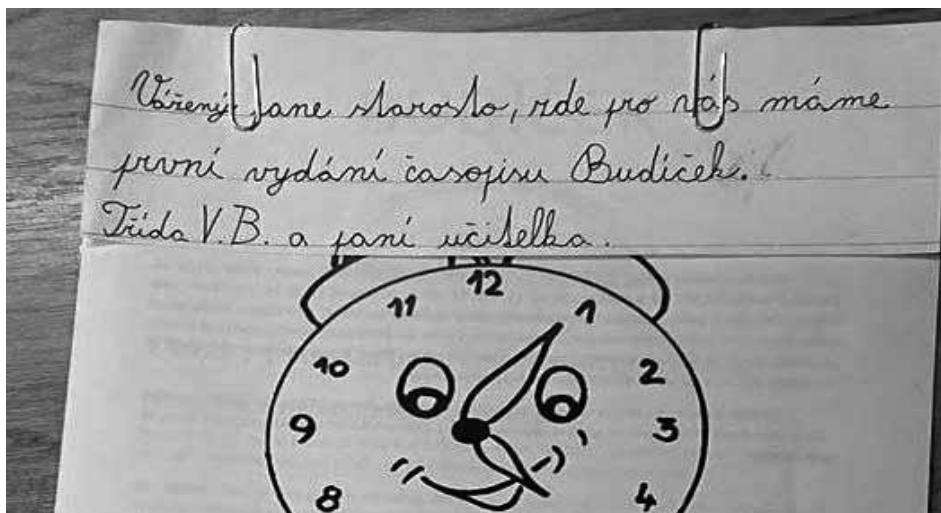 Vážený pane starosto, zde pro vás máme
první vydání časopisu Budíček.
Třída V.B. a paní učitelka.
12
11
1
10
2
9
3
8
4